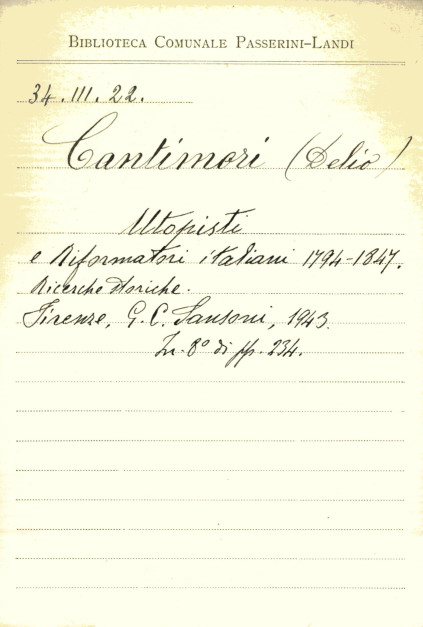 BIBLIOTECA COMUNALE PASSERINI-LANDI
34.III.22.
Cantimori (Delio)
Utopisti
e Riformatori italiani 1794-1847.
Ricerche storiche.
Firenze, G. C. Sansoni, 1943.
In-8° di pp. 234.